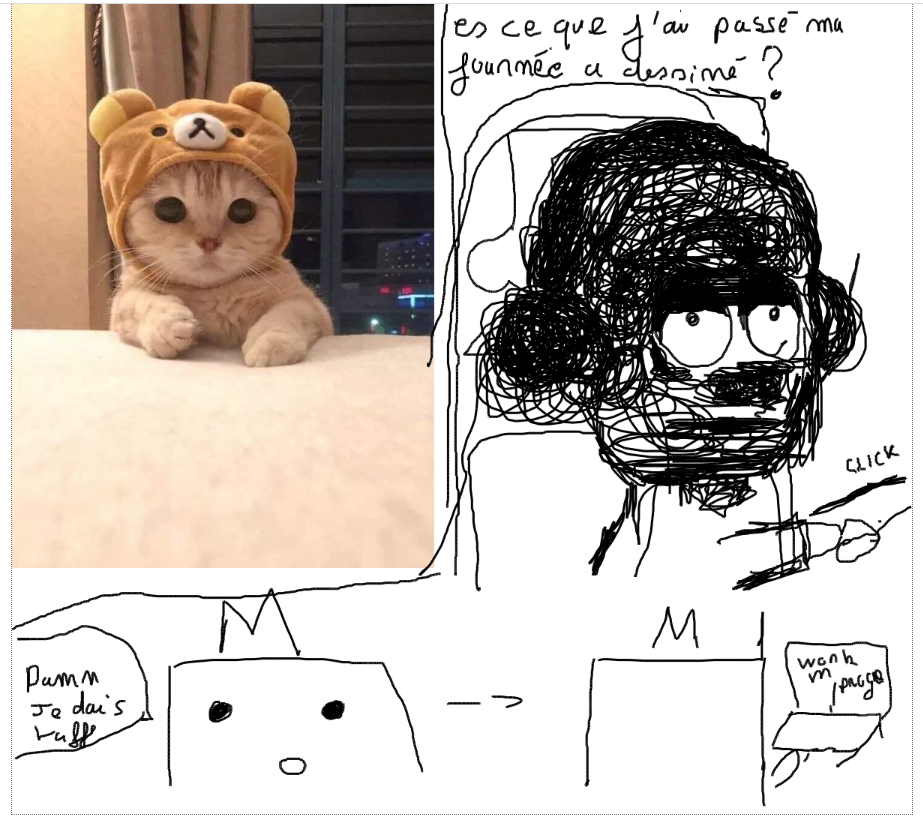 es ce que j'ai passé ma
journée a dessiné ?
CLICK
M
M
Damn
Je dois
taff
work
in progo